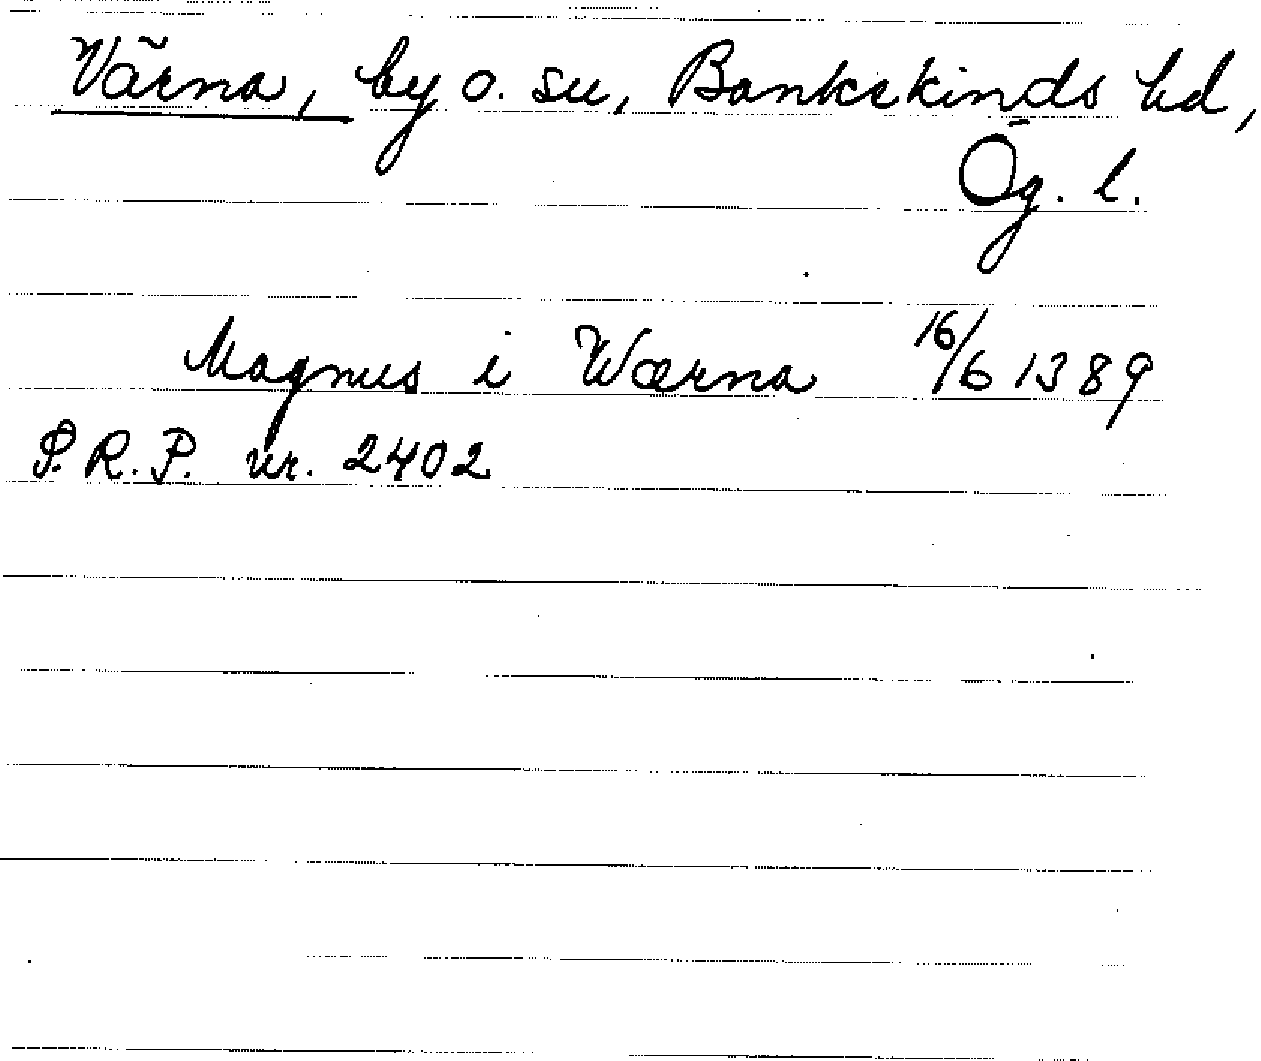 Värna, by o. su, Bankekinds hd,
Ög. l.
Magnus i Wærna 16/6 1389
S.R.P. nr. 2402